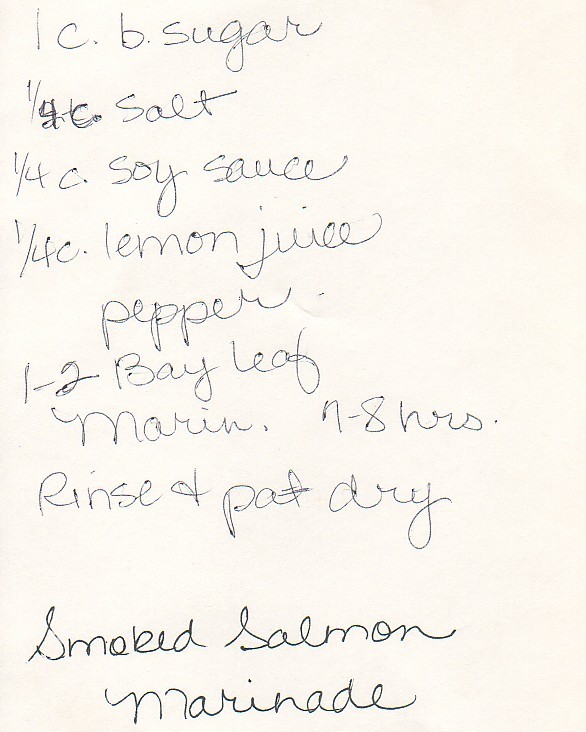 1 c. b. sugar
salt
1/4 c. soy sauce
1/4 c. lemon juice
pepper
1-2 Bay leaf
Marin. 7-8 hrs.
Rinse & pat dry
Smoked Salmon
Marinade